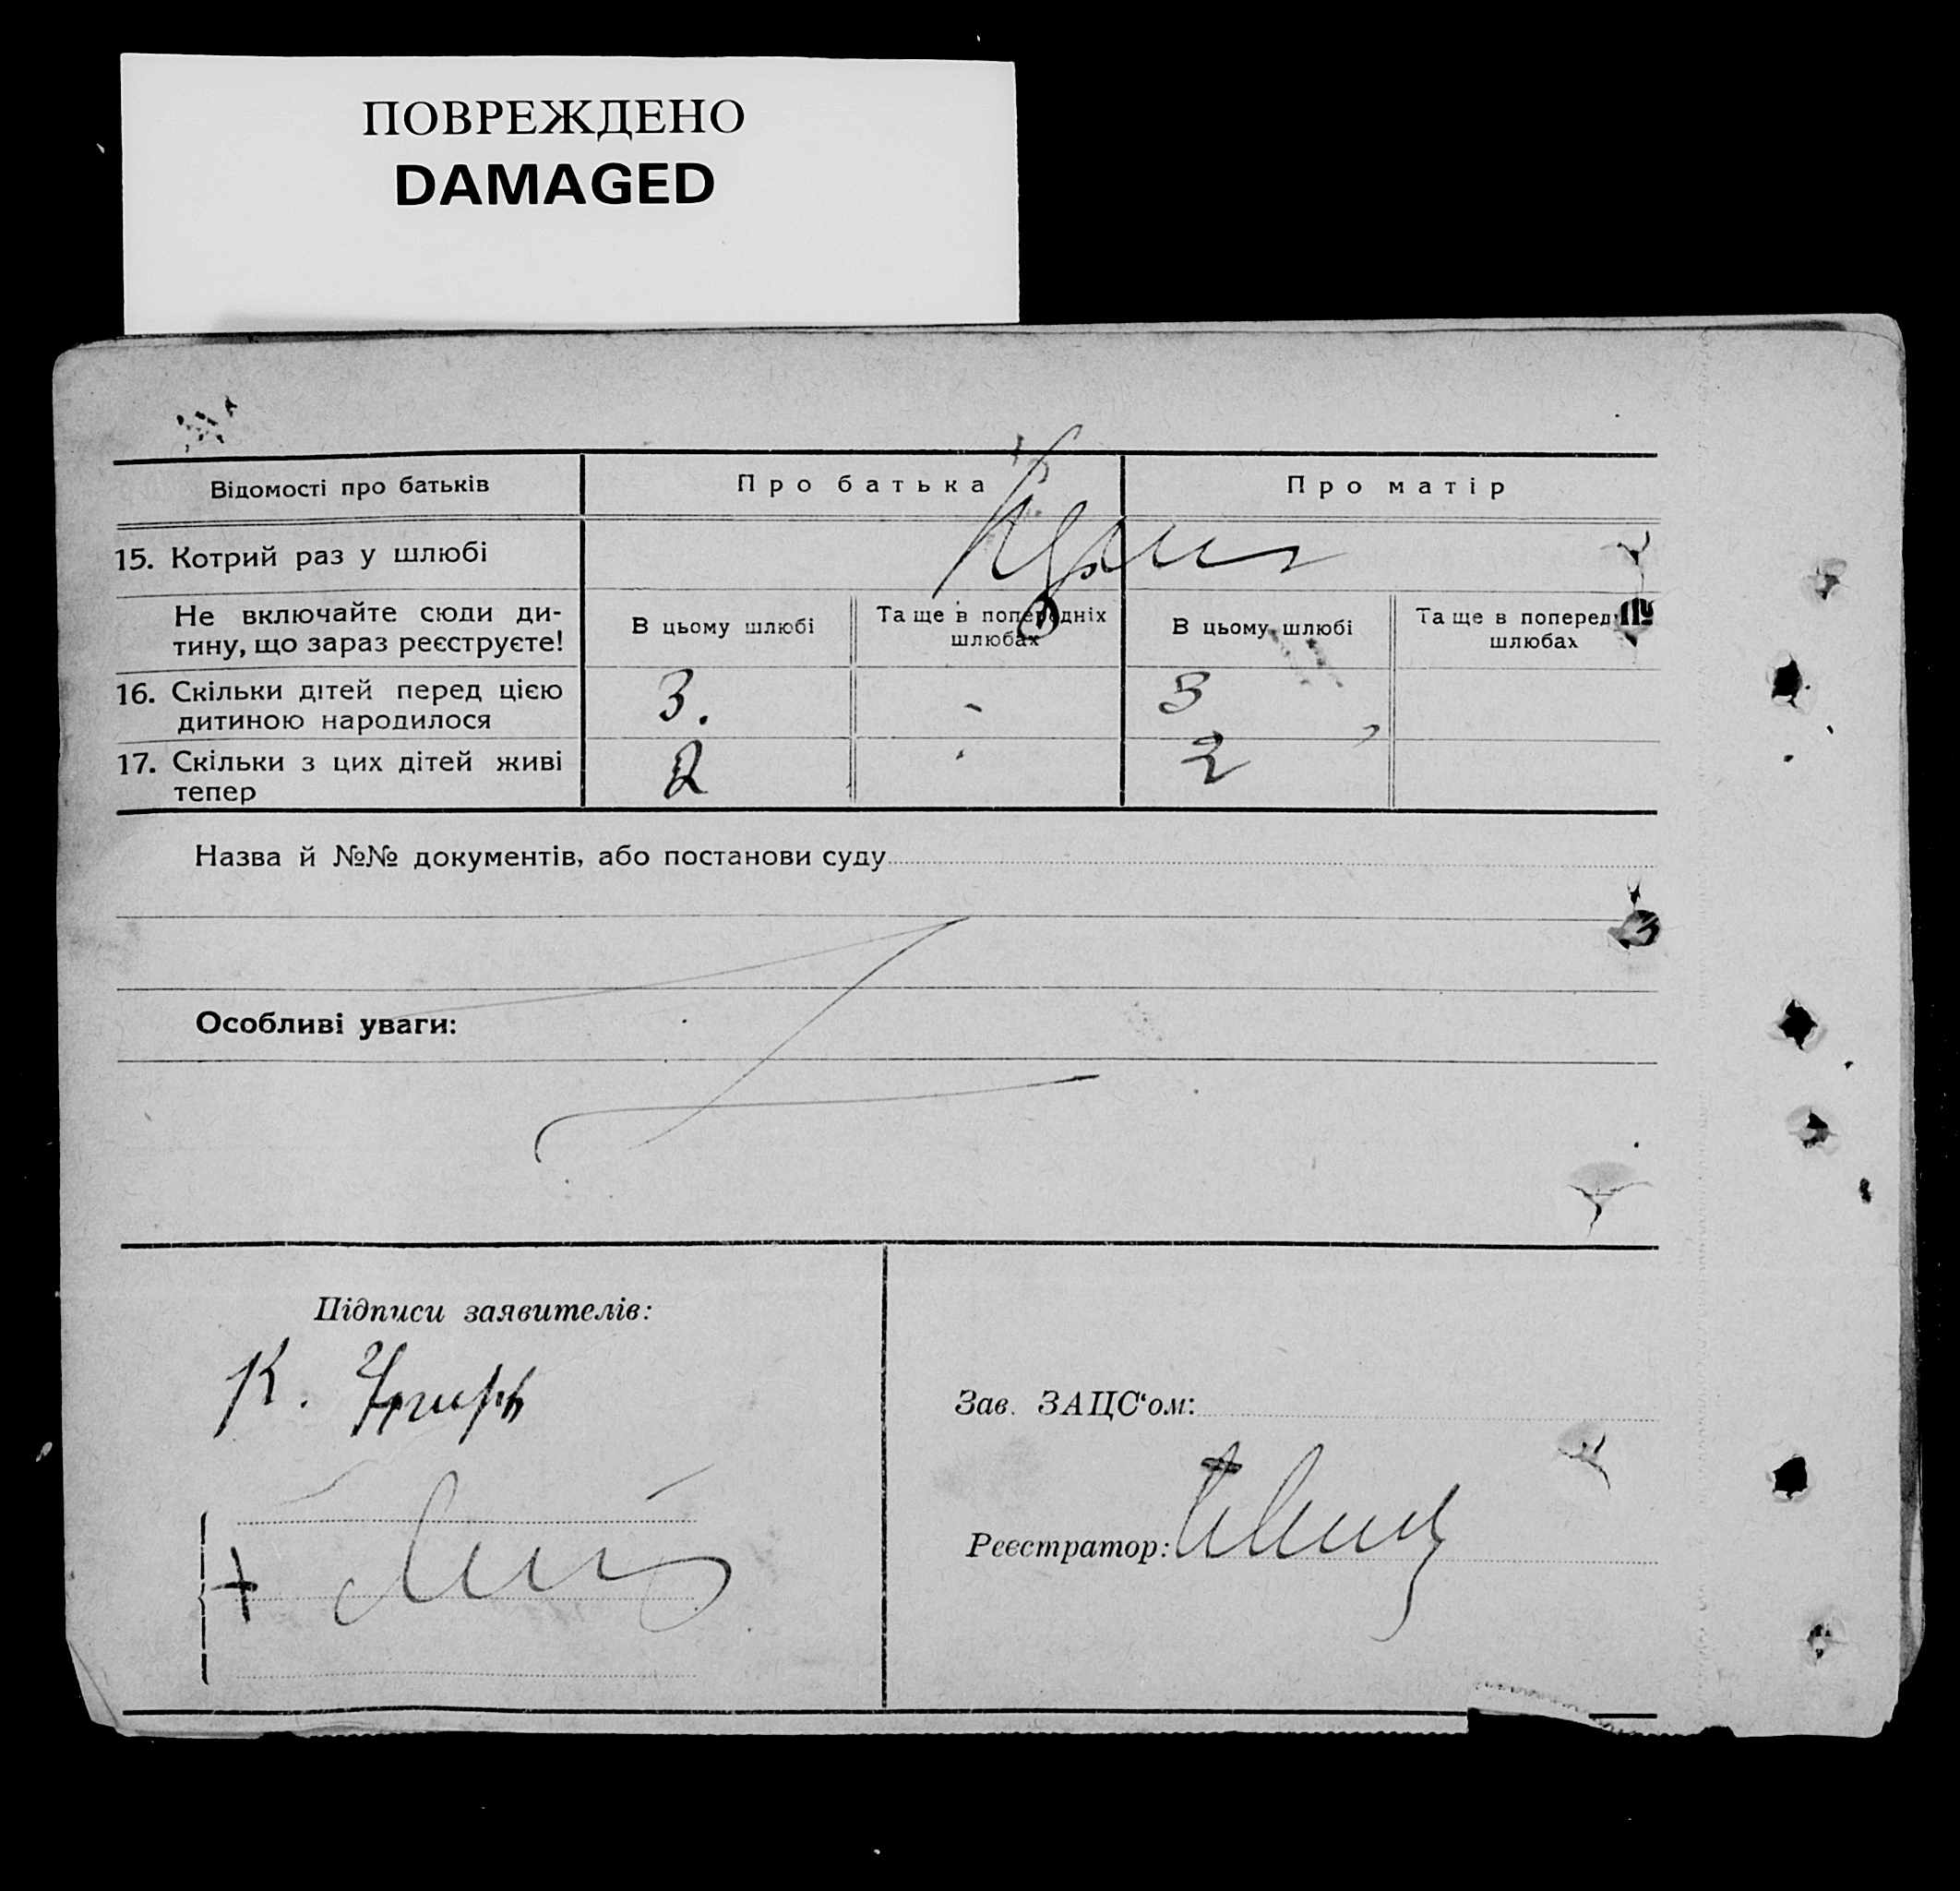 ПОВРЕЖДЕНО
DAMAGED
Відомості про батьків
Про батька
Про матір
15. Котрий раз у шлюбі
Не включайте сюди ди-
тину, що зараз реєструєте!
В цьому шлюбі
Та ще в попередніх
шлюбах
В цьому шлюбі
Та ще в поперед
шлюбах
16. Скільки дітей перед цією
дитиною народилося
3.
-
3
17. Скільки з цих дітей живі
тепер
2
2
Назва й №№ документів, або постанови суду
Особливі уваги:
Підписи заявителів:
К.
Зав. ЗАЦС‘ом:
Реєстратор:
+